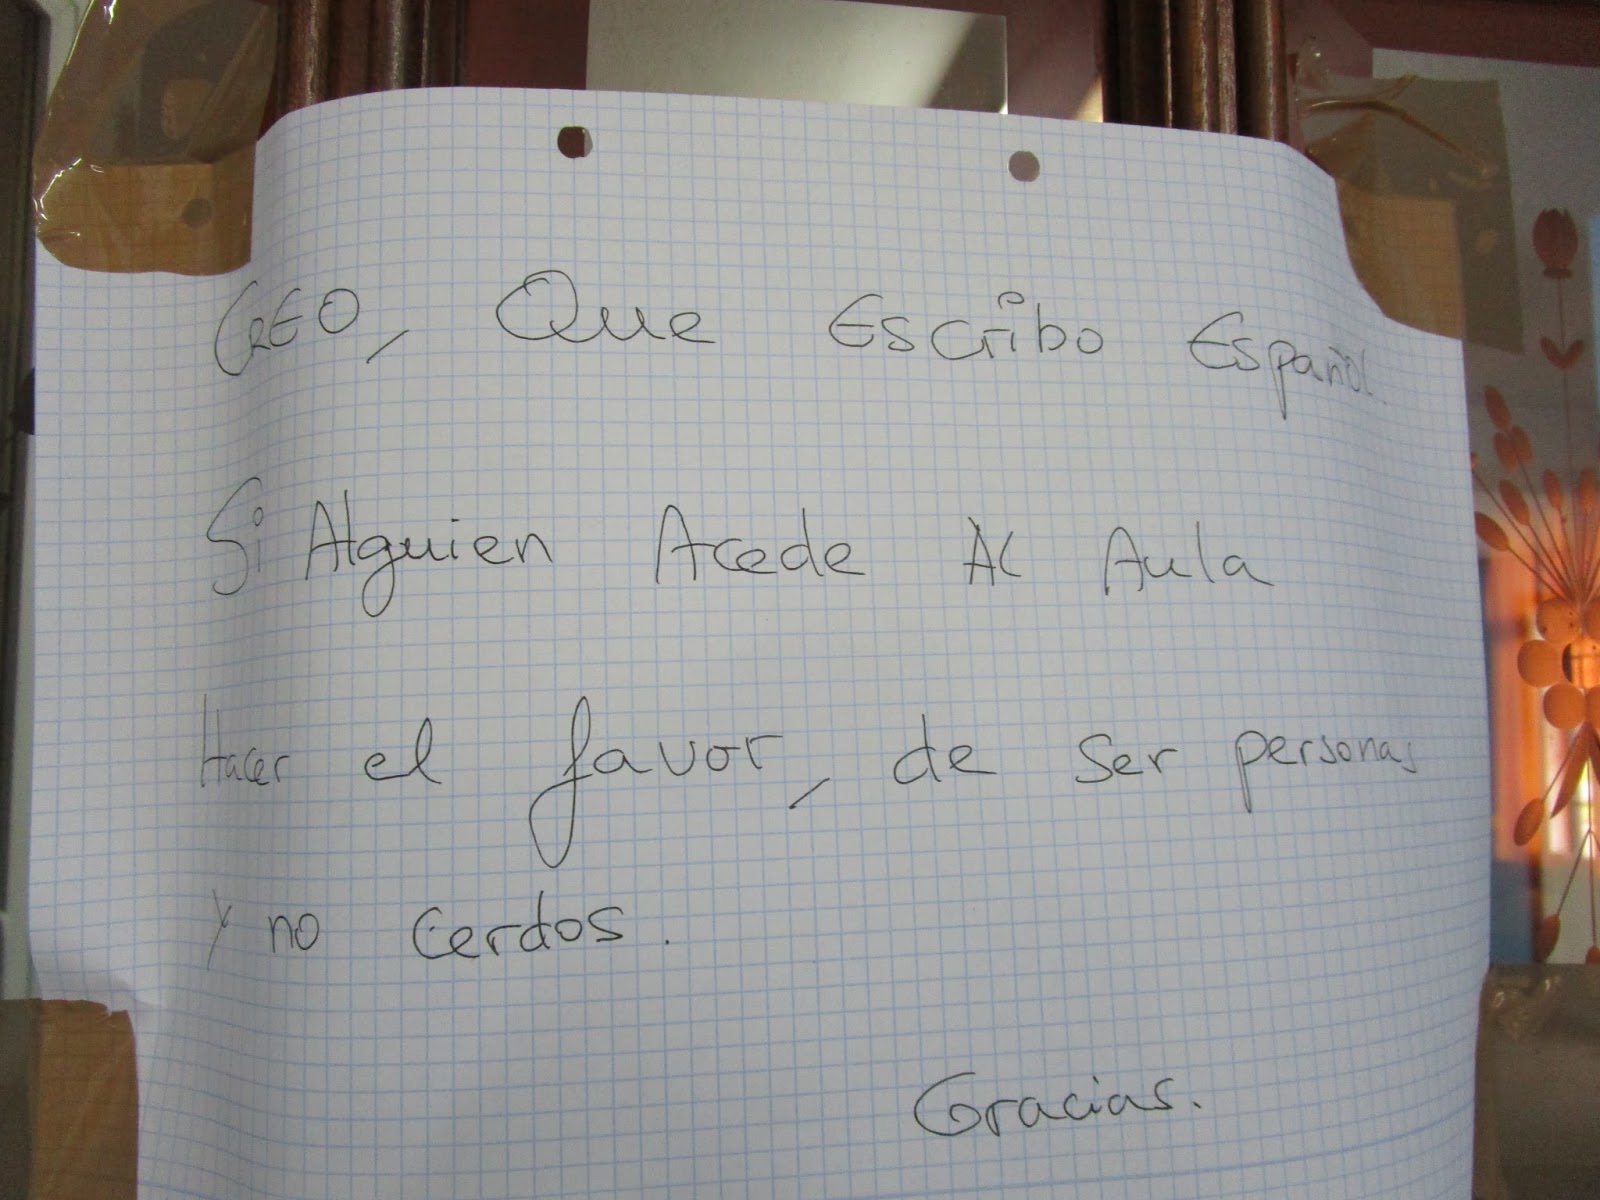 CREO, Que Escribo Español.
Si Alguien Acede Al Aula
Hacer el favor, de ser personas
Y no cerdos.
Gracias.